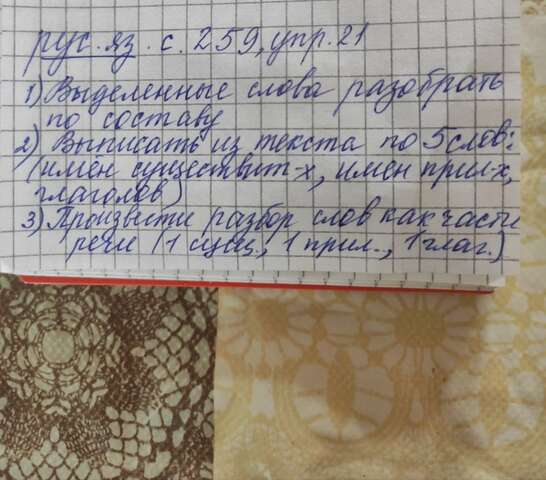 рус. яз. с. 259, упр. 21
1) Выделенные слова разобрать
по составу
2) Выписать из текста по 5 слов:
(имён существит-х, имен прил-х,
глаголов)
3) Произвести разбор слов как части
речи (1 сущ., 1 прил., 1 глаг.)